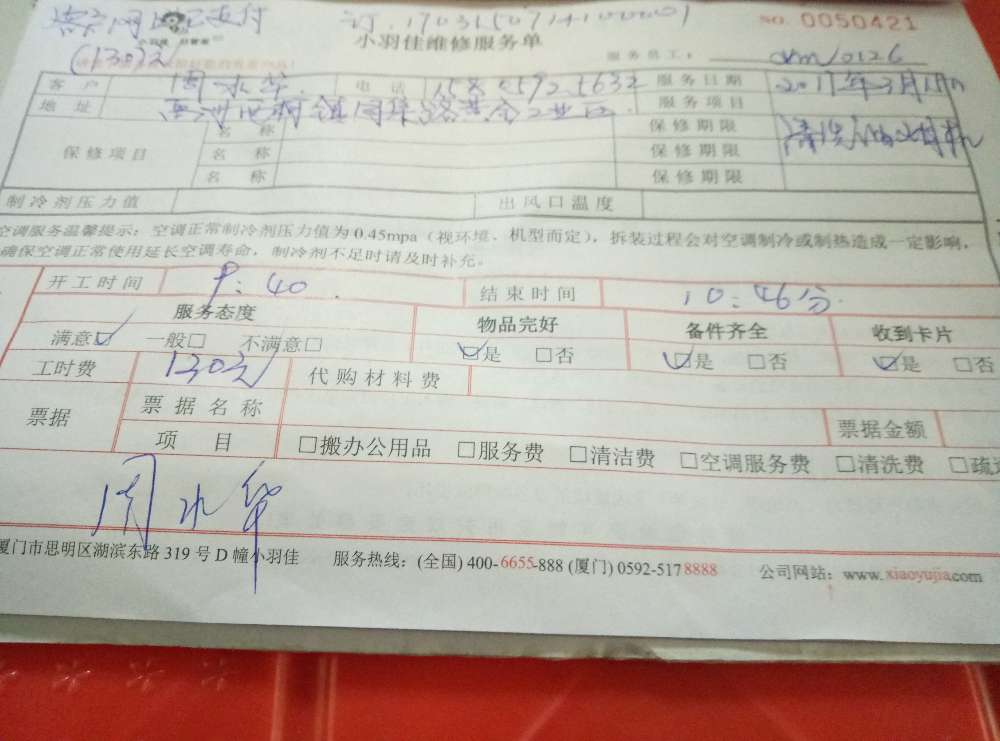 客户网上已支付 订.17031507141100001 NO. 0050421
(130)元 小羽佳维修服务单 服务员工: xm10126
客户 周水华 电话 服务日期 2017年3月
地址 镇 路 工业区 服务项目 清洗油烟机
保修项目 名称 保修期限
名称 保修期限
名称 保修期限
制冷剂压力值 出风口温度
空调服务温馨提示:空调正常制冷剂压力值为0.45mpa(视环境、机型而定),拆装过程会对空调制冷或制热造成一定影响,
确保空调正常使用延长空调寿命,制冷剂不足时请及时补充。
开工时间 9:40. 结束时间 10:46分.
服务态度 物品完好 备件齐全 收到卡片
满意☑ 一般□ 不满意□ ☑是 □否 ☑是 □否 ☑是 □否
工时费 130元 代购材料费
票据 票据名称 票据金额
项目 □搬办公用品 □服务费 □清洁费 □空调服务费 □清洗费 □疏
周水华
厦门市思明区湖滨东路319号D幢小羽佳 服务热线:(全国) 400-6655-888 (厦门) 0592-5178888 公司网站:www.xiaoyujia.com